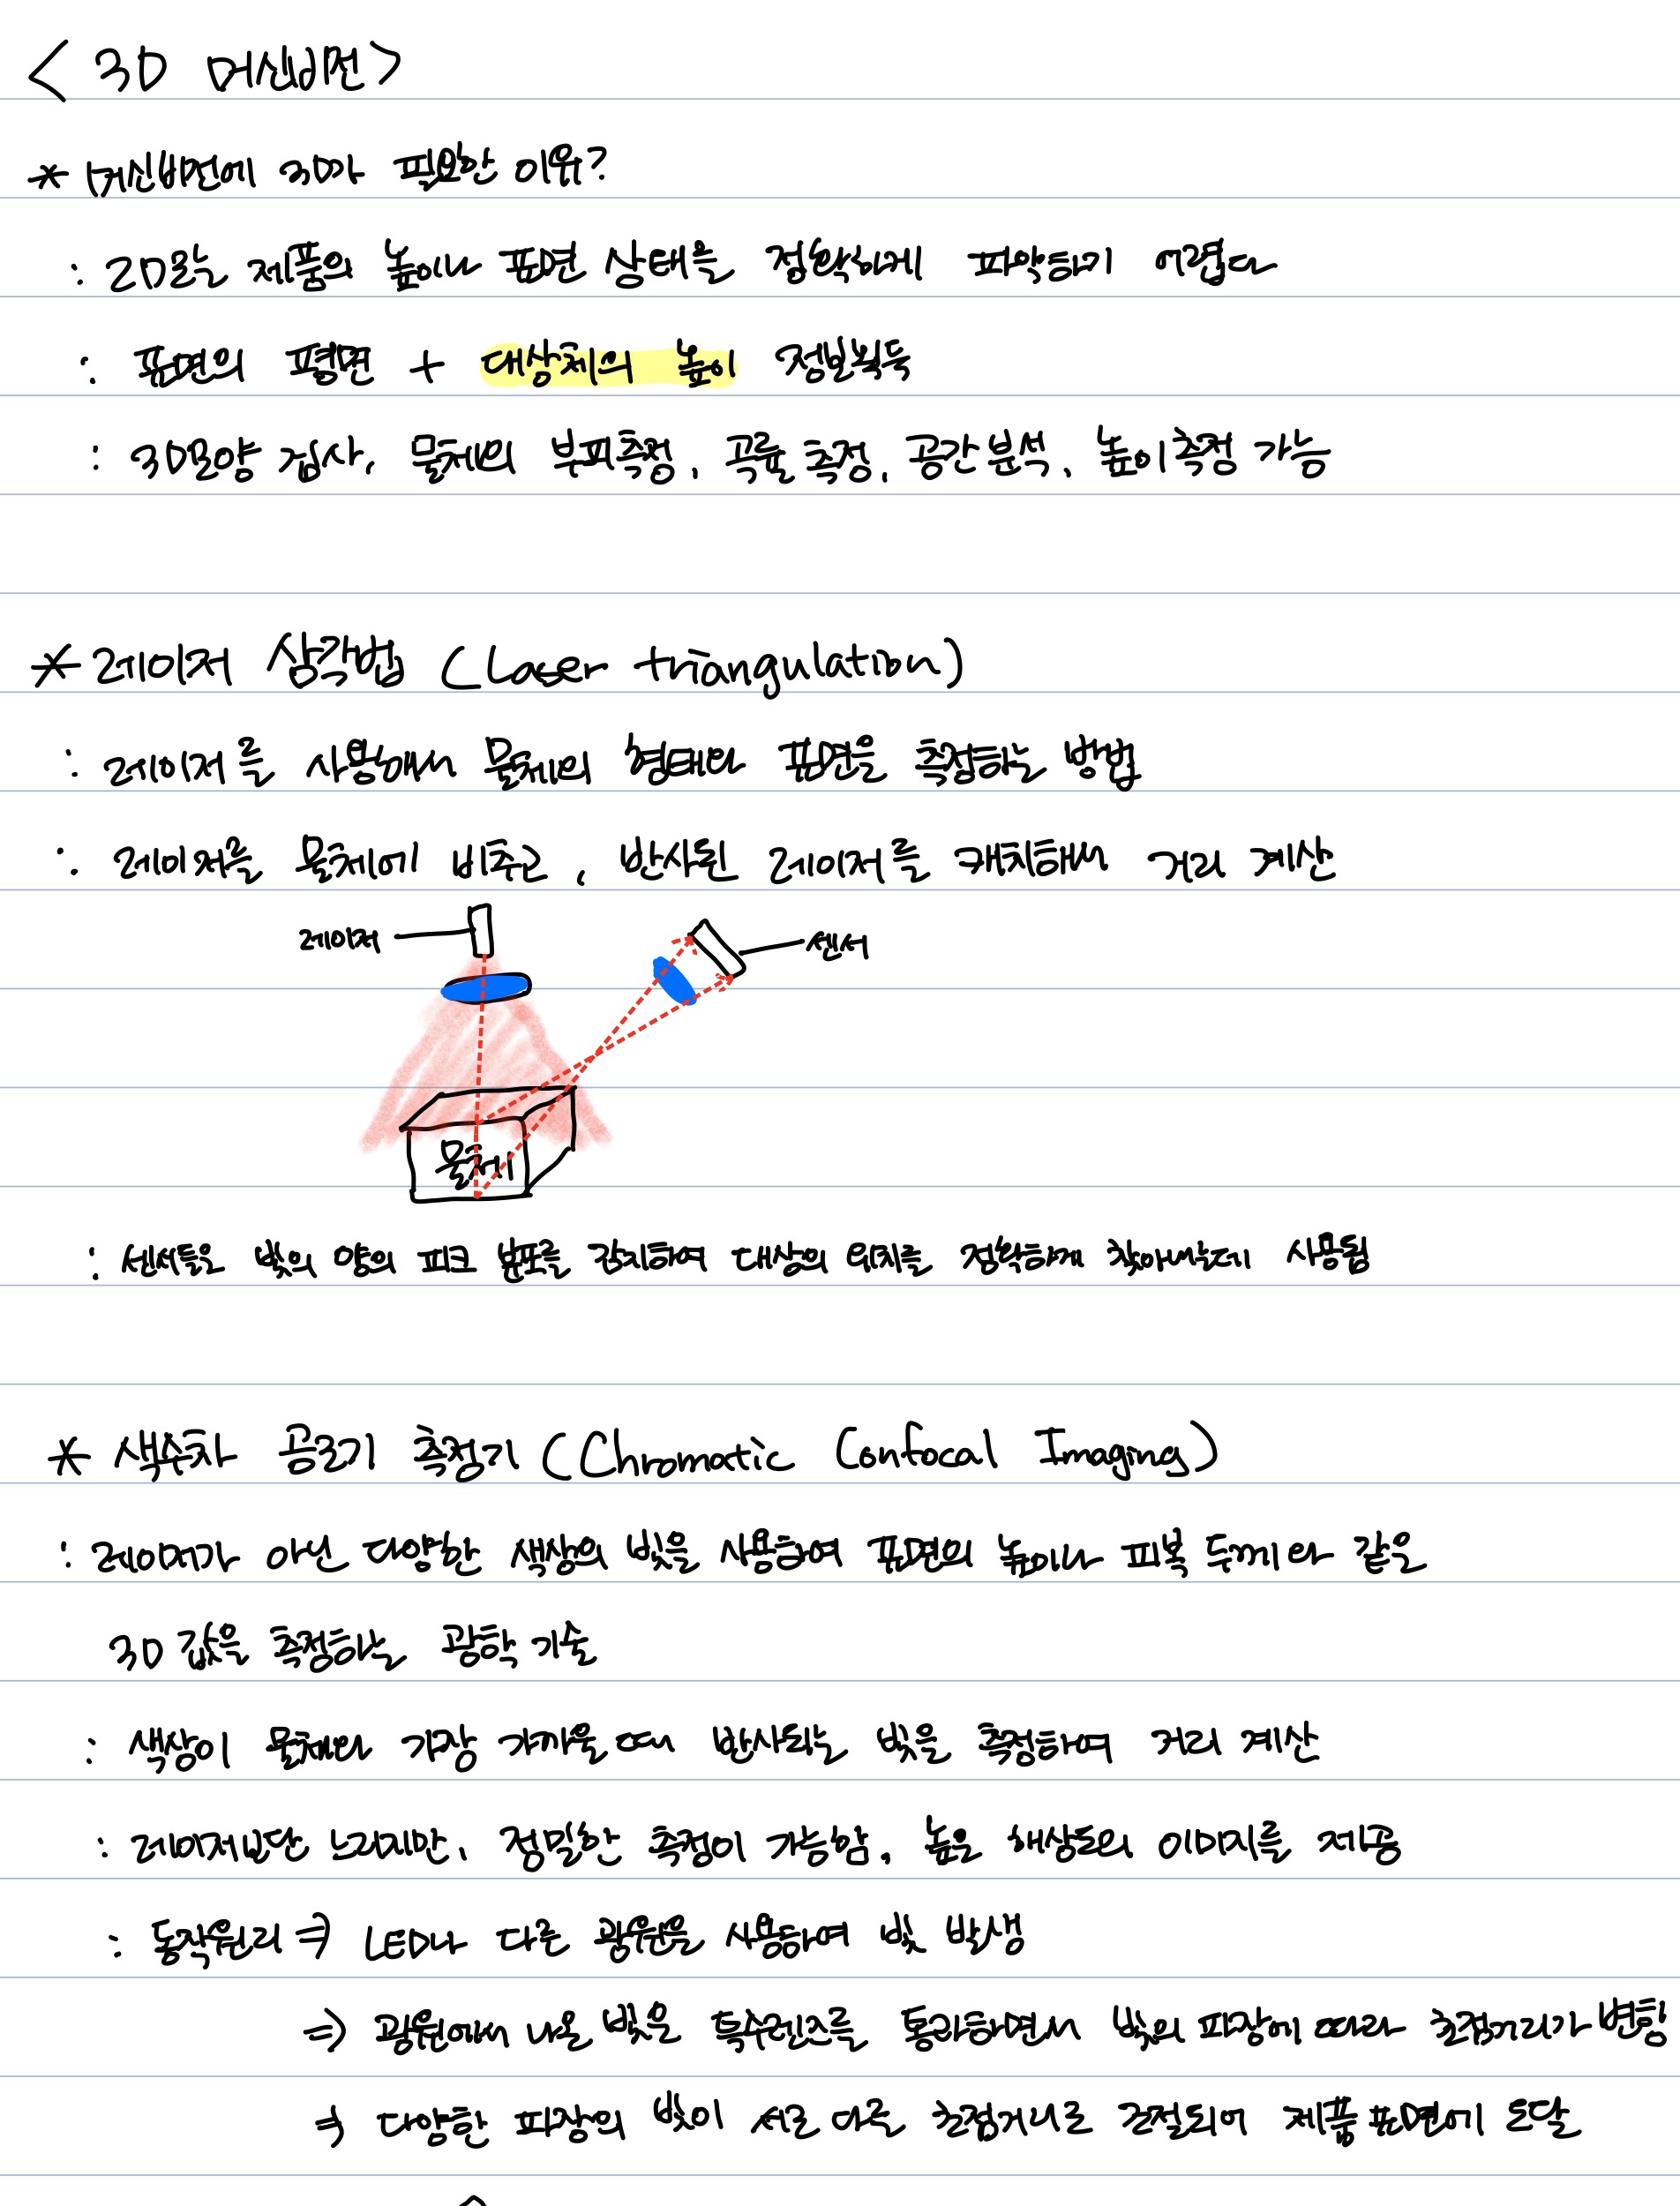 < 3D 머신비전>
* 머신비전에 3D가 필요한 이유?
: 2D로는 제품의 높이나 표면 상태를 정확하게 파악하기 어렵다
: 표면의 평면 + 대상체의 높이 정보획득
: 3D모양 검사, 물체의 부피측정, 곡률 측정, 공간분석, 높이측정 가능
* 레이저 삼각법 (Laser triangulation)
: 레이저를 사용해서 물체의 형태와 표면을 측정하는 방법
: 레이저를 물체에 비추고, 반사된 레이저를 캐치해서 거리 계산
레이저
센서
물체
: 센서들은 빛의 양의 피크 분포를 감지하여 대상의 위치를 정확하게 찾아내는데 사용됨
* 색수차 공초기 측정기 (Chromatic Confocal Imaging)
: 레이저가 아닌 다양한 색상의 빛을 사용하여 표면의 높이나 피복 두께와 같은
3D 값을 측정하는 광학 기술
: 색상이 물체와 가장 가까울 때 반사되는 빛을 측정하여 거리 계산
: 레이저보단 느리지만, 정밀한 측정이 가능함, 높은 해상도의 이미지를 제공
: 동작원리 ⇒ LED나 다른 광원을 사용하여 빛 발생
⇒ 광원에서 나온 빛을 특수렌즈를 통과하면서 빛의 파장에 따라 초점거리가 변함
⇒ 다양한 파장의 빛이 서로 다른 초점거리로 조절되어 제품 표면에 도달